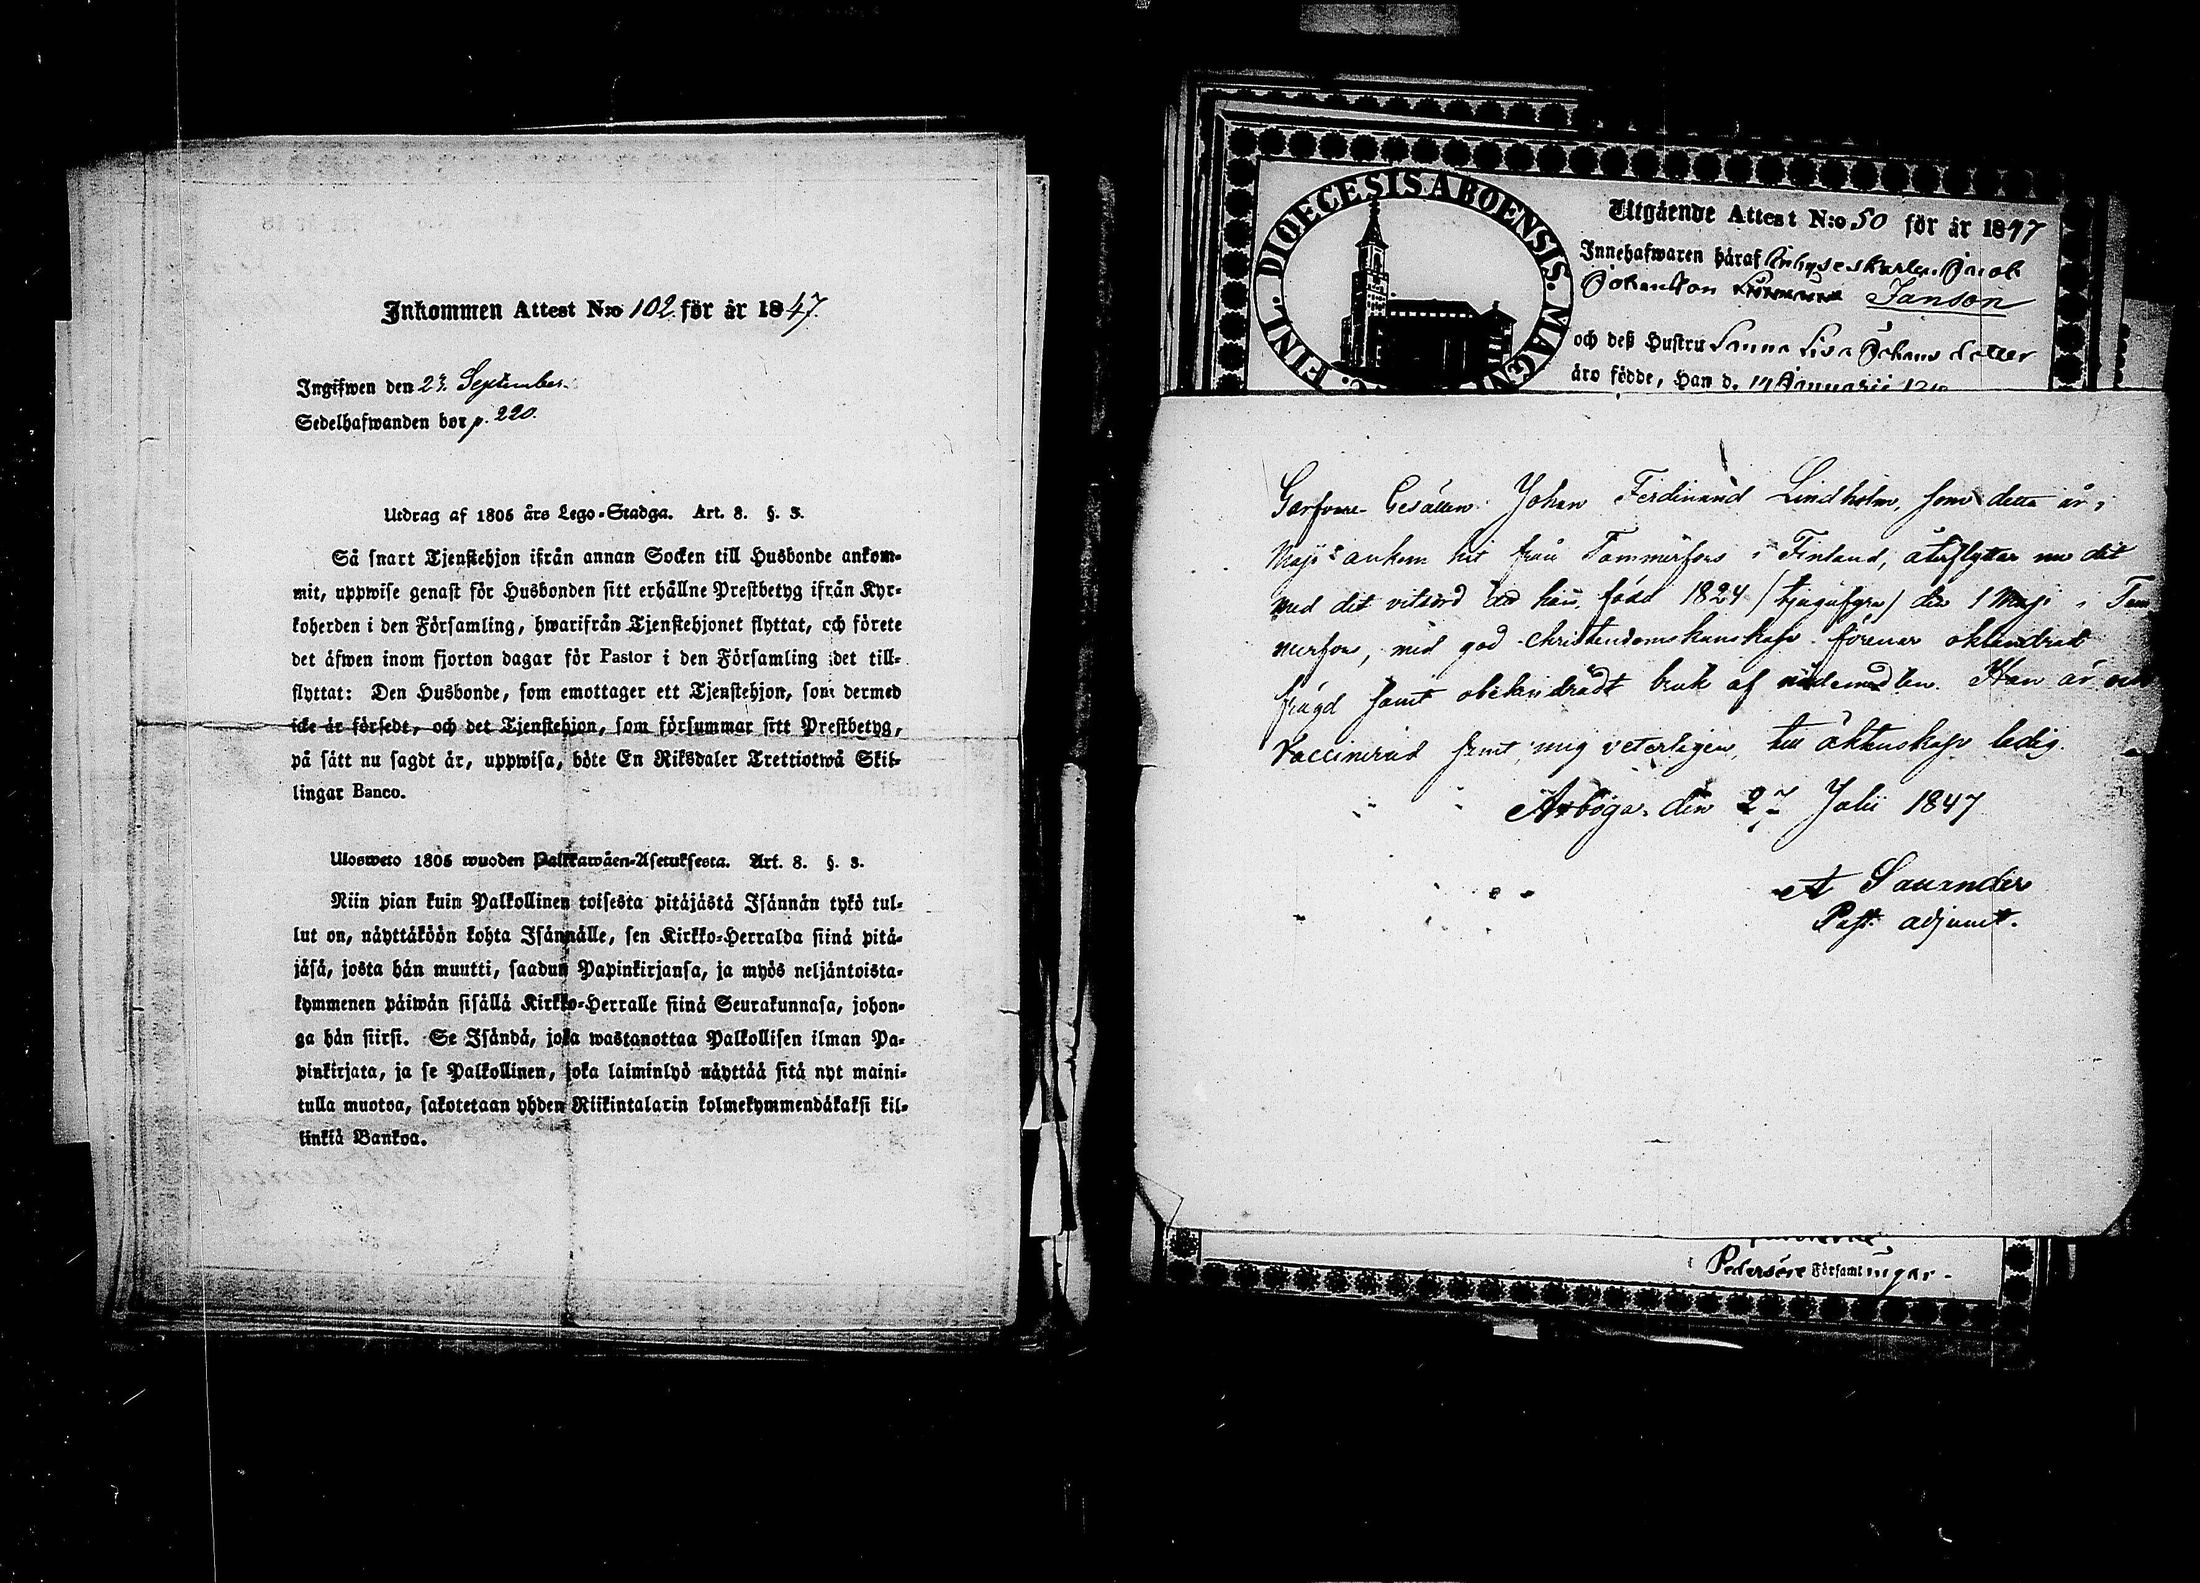 Inkommen Attest N:o 102 för år 1847.
Ingifwen den 23. September.
Sedelhafwanden bor p. 220.
Utdrag af 1805 års Lego-Stadga. Art. 8. §. 3.
Så snart Tjenstehjon ifrån annan Socken till Husbonde ankom-
mit, uppwise genast för Husbonden sitt erhållne Prestbetyg ifrån Kyr-
koherden i den Församling, hwarifrån Tjenstehjonet flyttat, och förete
det äfwen inom fjorton dagar för Pastor i den Församling det till-
flyttat: Den Husbonde, som emottager ett Tjenstehjon, som dermed
icke är försedt, och det Tjenstehjon, som försummar sitt Prestbetyg,
på sätt nu sagdt är, uppwisa, böte En Riksdaler Trettiotwå Skil-
lingar Banco.
Ulosweto 1805 wuoden Palkkawäen-Asetuksesta. Art. 8. §. 3.
Niin pian kuin Palkollinen toisesta pitäjästä Isännän tykö tul-
lut on, näyttäköön kohta Isännälle, sen Kirkko-Herralda siinä pitä-
jäsä, josta hän muutti, saadun Papinkirjansa, ja myös neljäntoista-
kymmenen päiwän sisällä Kirkko-Herralle siinä Seurakunnasa, johon-
ga hän siirsi. Se Isändä, joka wastanottaa Palkollisen ilman Pa-
pinkirjata, ja se Palkollinen, joka laiminlyö näyttää sitä nyt maini-
tulla muotoa, sakotetaan yhden Riikintalarin kolmekymmendäkaksi kil-
linkiä Bankoa.
FINL. DIOECESIS ABOENSIS. MAGN
Utgående Attest N:o 50 för år 1847
Innehafwaren häraf Inhyseskarlen Jacob
Johansson Janson
och deß Hustru Sanna Lisa Johansdotter
äro födde, Han d. 14 Januarii
Garfvare Gesällen Johan Ferdinand Lindholm, som detta år i
Maji ankom hit från Tammerfors i Finland, återflyttar nu dit
med det vitsord att han, född 1824 /tjugufyra/ den 1 Maji i Tam
merfors, med god christendomskunskap förenar oklandrad
frägd samt obehindradt bruk af nådemedlen. Han är och
Vaccinerad samt, mig veterligen, till äktenskap ledig.
Arboga den 27 Julii 1847
A Sauander
Past. adjunct.
Pedersöre Församlingar.